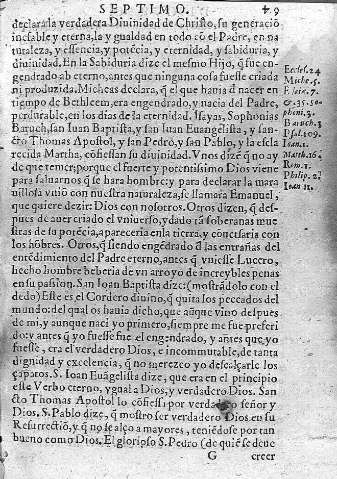 SEPTIMO. 49
declara la verdadera Diuinidad de Christo, su generaciō
inefable y eterna, la ygualdad en todo cō el Padre, en na
turaleza, y essencia, y potēcia, y eternidad, y sabiduria, y
diuinidad. En la Sabiduria dize el mesmo Hijo, q̄ fue en
gendrado ab eterno, antes que ninguna cosa fuesse criada
ni produzida. Micheas declara, q̄ el que hauia d̄ nacer en
tiempo de Bethleem, era engendrado, y nacia del Padre,
perdurable, en los dias de la eternidad. Isayas, Sophonias
Baruch, san Iuan Baptista, y san Iuan Euangelista, y san-
cto Thomas Apostol, y san Pedro, y san Pablo, y la escla
recida Martha, cōfiessan su diuinidad. Vnos dizē q̄ no ay
de que temer; porque el fuerte y potentissimo Dios viene
para saluarnos q̄ se hara hombre; y para declarar la mara
uillosa vniō con nuestra naturaleza, se llamara Emanuel,
que quiere dezir: Dios con nosotros. Otros dizen, q̄ des-
pues de auer criado el vniuerso, y dado tā soberanas mue
stras de su potēcia, apareceria en la tierra, y cōuersaria con
los hōbres. Otros, q̄ siendo engēdrado d̄ las entrañas del
entēdimiento del Padre eterno, antes q̄ vniesse Lucero,
hecho hombre beberia de vn arroyo de increybles penas
en su passion. San Ioan Baptista dize: (mostrādolo con el
dedo) Este es el Cordero diuino, q̄ quita los peccados del
mundo: del qual os hauia dicho, que aūque vino despues
de mi, y aunque naci yo primero, siempre me fue preferi
do: y antes q̄ yo fuesse fue el engendrado, y antes que yo
fuesse, era el verdadero Dios, e incommutable, de tanta
dignidad y excelencia, q̄ no merezco yo descalçarle los
çapatos. S. Ioan Euāgelista dize, que era en el principio
este Verbo eterno, ygual a Dios, y verdadero Dios. San
cto Thomas Apostol lo cōfiessa por verdadero señor y
Dios. S. Pablo dize, q̄ mostro ser verdadero Dios en su
Resurrectiō, y q̄ no se alço a mayores, teniēdose por tan
bueno como Dios. El glorioso S. Pedro (de quiē se deue
G creer
Eccles. 24
Miche. 5.
Esaie. 7.
& 35. So-
phoni. 3.
Baruch. 3
Psal. 109.
Ioan. 1.
Matth. 16.
Rom. 1.
Philip. 2.
Ioan 11.